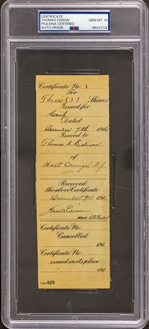 CERTIFICATE
THOMAS EDISON
PSA/DNA CERTIFIED
AUTO GRADE
GEM MT 10
PSA
Certificate No 1
For
Three (3) Shares
Issued for
Cash
Dated
December 7th 190
Issued to
Thomas A Edison
of
West Orange N.J.
Received
the above Certificate
December 190
Certificate No
Cancelled
190
Certificate No
issued in its place
190